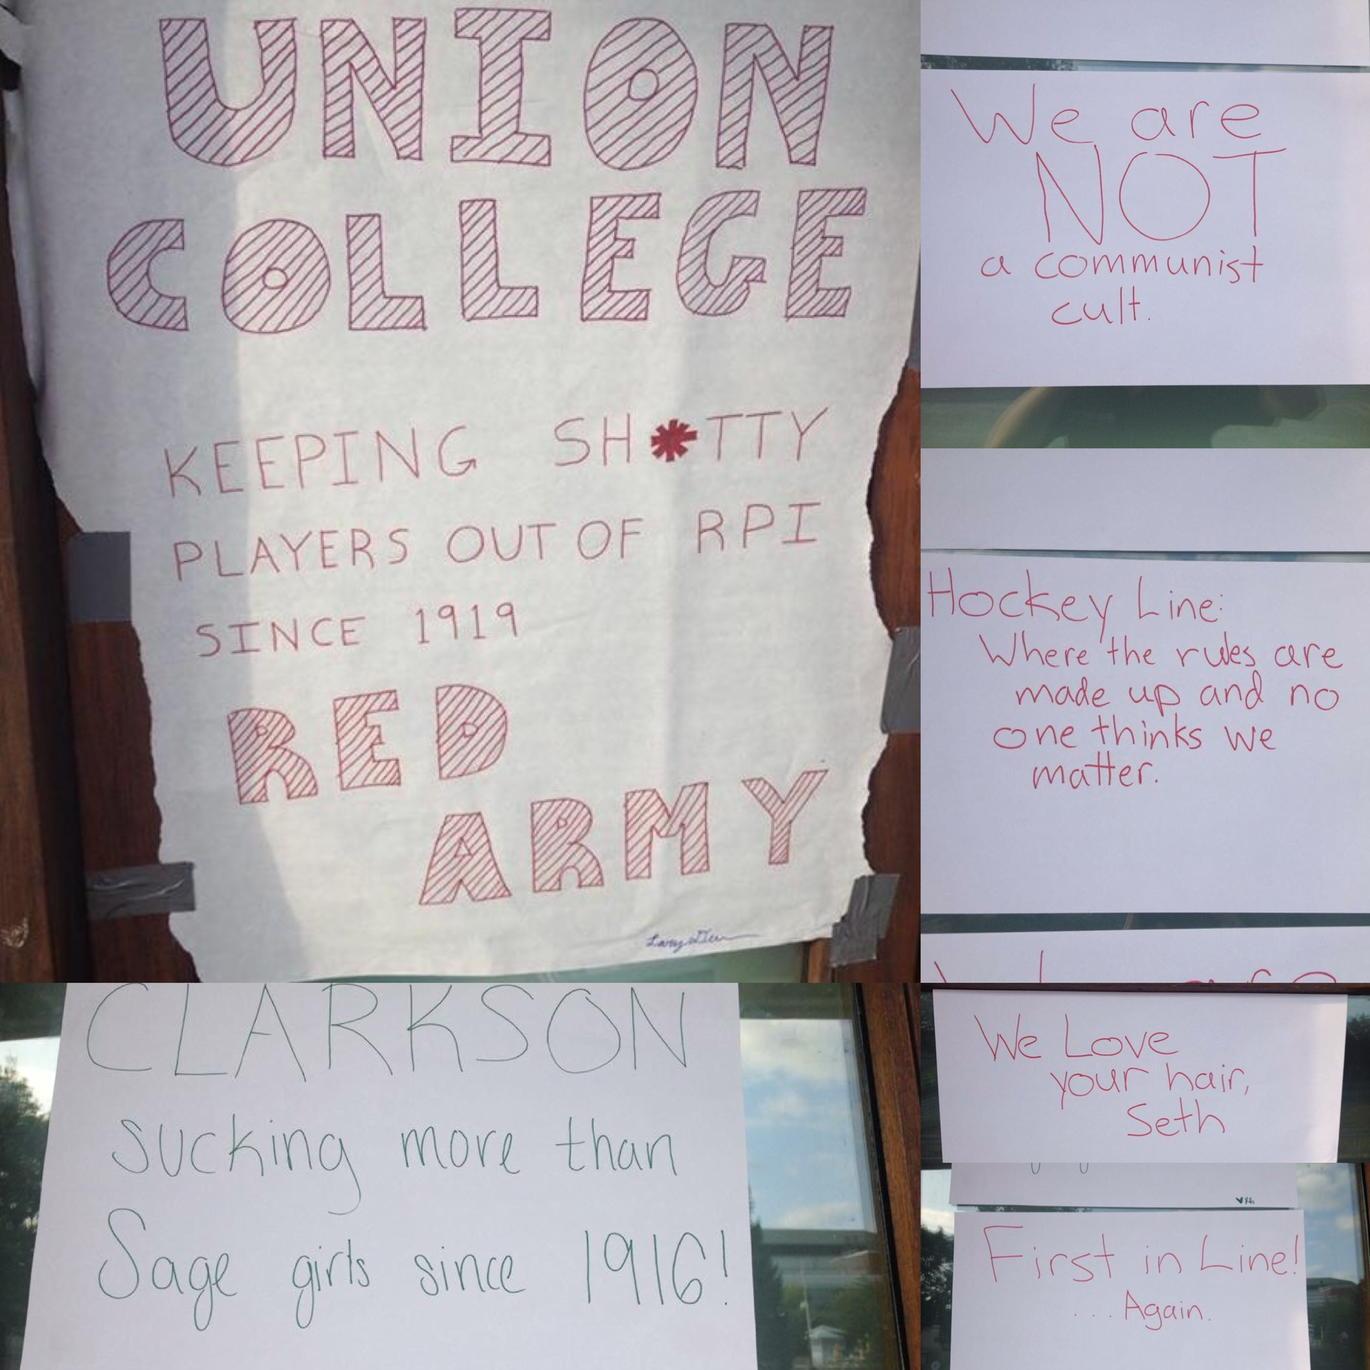 UNION
COLLEGE
KEEPING SH*TTY
PLAYERS OUT OF RPI
SINCE 1919
RED
ARMY
We are
NOT
a communist
cult.
Hockey Line:
Where the rules are
made up and no
one thinks we
matter.
CLARKSON
sucking more than
Sage girls since 1916!
We Love
your hair,
Seth
First in Line!
...Again.